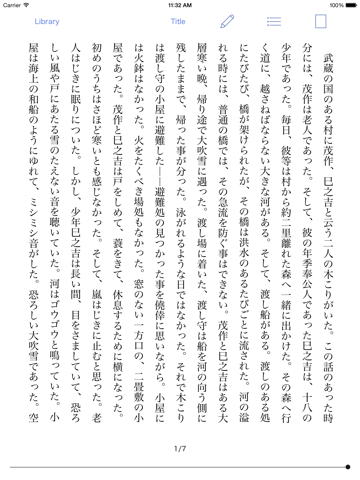 Carrier
11:32 AM
100%
Library
Title
武蔵の国のある村に茂作、巳之吉と云う二人の木こりがいた。この話のあった時
分には、茂作は老人であった。そして、彼の年季奉公人であった巳之吉は、十八の
少年であった。毎日、彼等は村から約二里離れた森へ一緒に出かけた。その森へ行
く道に、越さねばならない大きな河がある。そして、渡し船がある。渡しのある処
にたびたび、橋が架けられたが、その橋は洪水のあるたびごとに流された。河の溢
れる時には、普通の橋では、その急流を防ぐ事はできない。茂作と巳之吉はある大
層寒い晩、帰り途で大吹雪に遇った。渡し場に着いた、渡し守は船を河の向う側に
残したままで、帰った事が分った。泳がれるような日ではなかった。それで木こり
は渡し守の小屋に避難した――避難処の見つかった事を僥倖に思いながら。小屋に
は火鉢はなかった。火をたくべき場処もなかった。窓のない一方口の、二畳敷の小
屋であった。茂作と巳之吉は戸をしめて、蓑をきて、休息するために横になった。
初めのうちはさほど寒いとも感じなかった。そして、嵐はじきに止むと思った。老
人はじきに眠りについた。しかし、少年巳之吉は長い間、目をさましていて、恐ろ
しい風や戸にあたる雪のたえない音を聴いていた。河はゴウゴウと鳴っていた。小
屋は海上の和船のようにゆれて、ミシミシ音がした。恐ろしい大吹雪であった。空
1/7